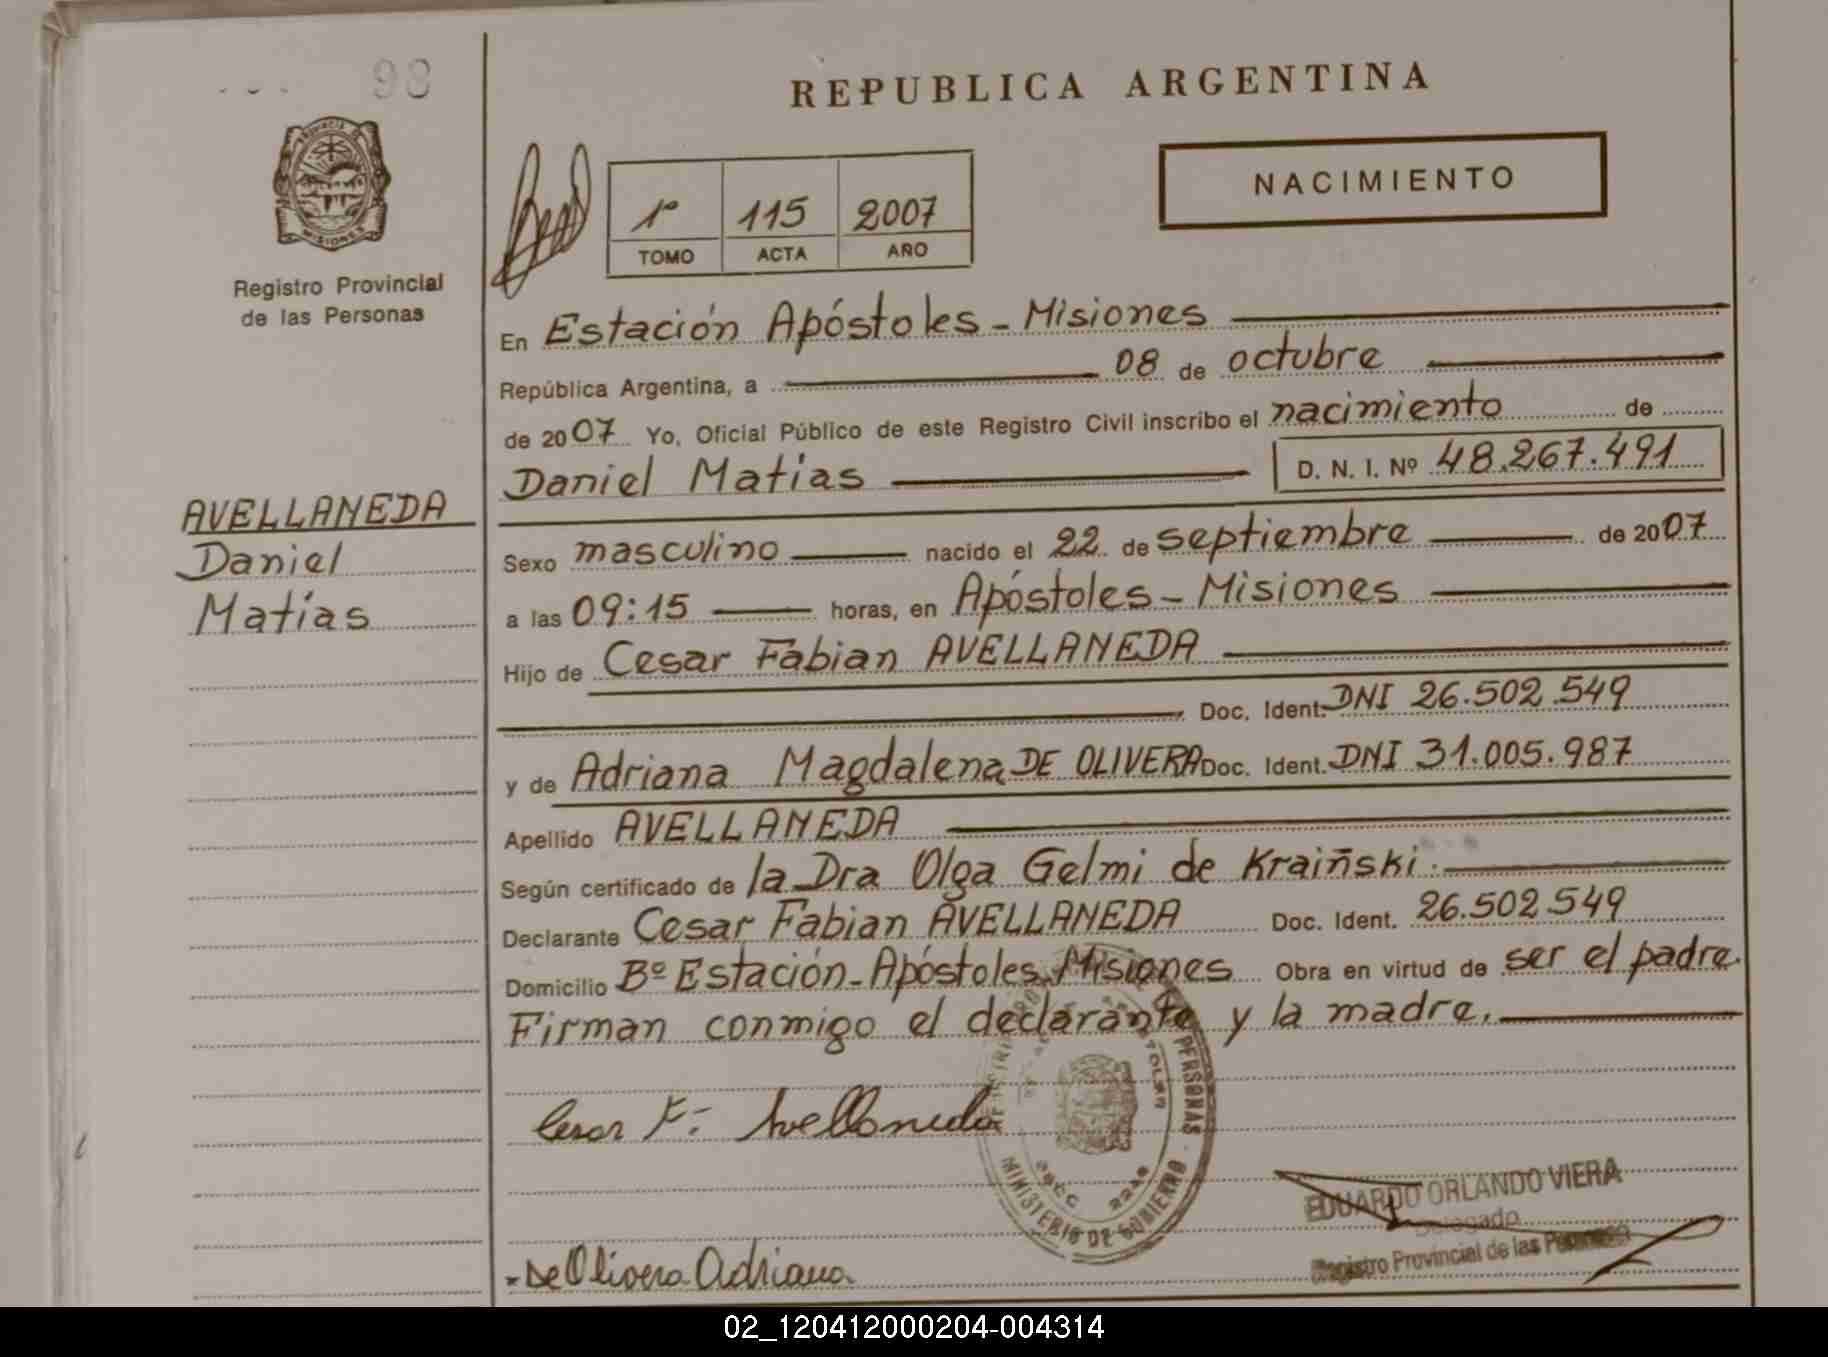 98
REPUBLICA ARGENTINA
PROVINCIA DE
MISIONES
Registro Provincial
de las Personas
1º 115 2007
TOMO ACTA AÑO
NACIMIENTO
En Estación Apóstoles - Misiones
República Argentina, a 08 de octubre
de 2007 Yo, Oficial Público de este Registro Civil inscribo el nacimiento de
Daniel Matías D. N. I. Nº 48.267.491
AVELLANEDA
Daniel
Matías
Sexo masculino nacido el 22 de septiembre de 2007
a las 09:15 horas, en Apóstoles - Misiones
Hijo de Cesar Fabian AVELLANEDA
Doc. Ident. DNI 26.502.549
y de Adriana Magdalena DE OLIVERA Doc. Ident. DNI 31.005.987
Apellido AVELLANEDA
Según certificado de la Dra Olga Gelmi de Kraiñski.
Declarante Cesar Fabian AVELLANEDA Doc. Ident. 26.502.549
Domicilio Bº Estación - Apóstoles, Misiones Obra en virtud de ser el padre.
Firman conmigo el declarante y la madre.
Cesar F. Avellaneda
PERSONAS
MINISTERIO DE GOBIERNO
EDUARDO ORLANDO VIERA
Delegado
Registro Provincial de las Personas
De Olivera Adriana
02_120412000204-004314